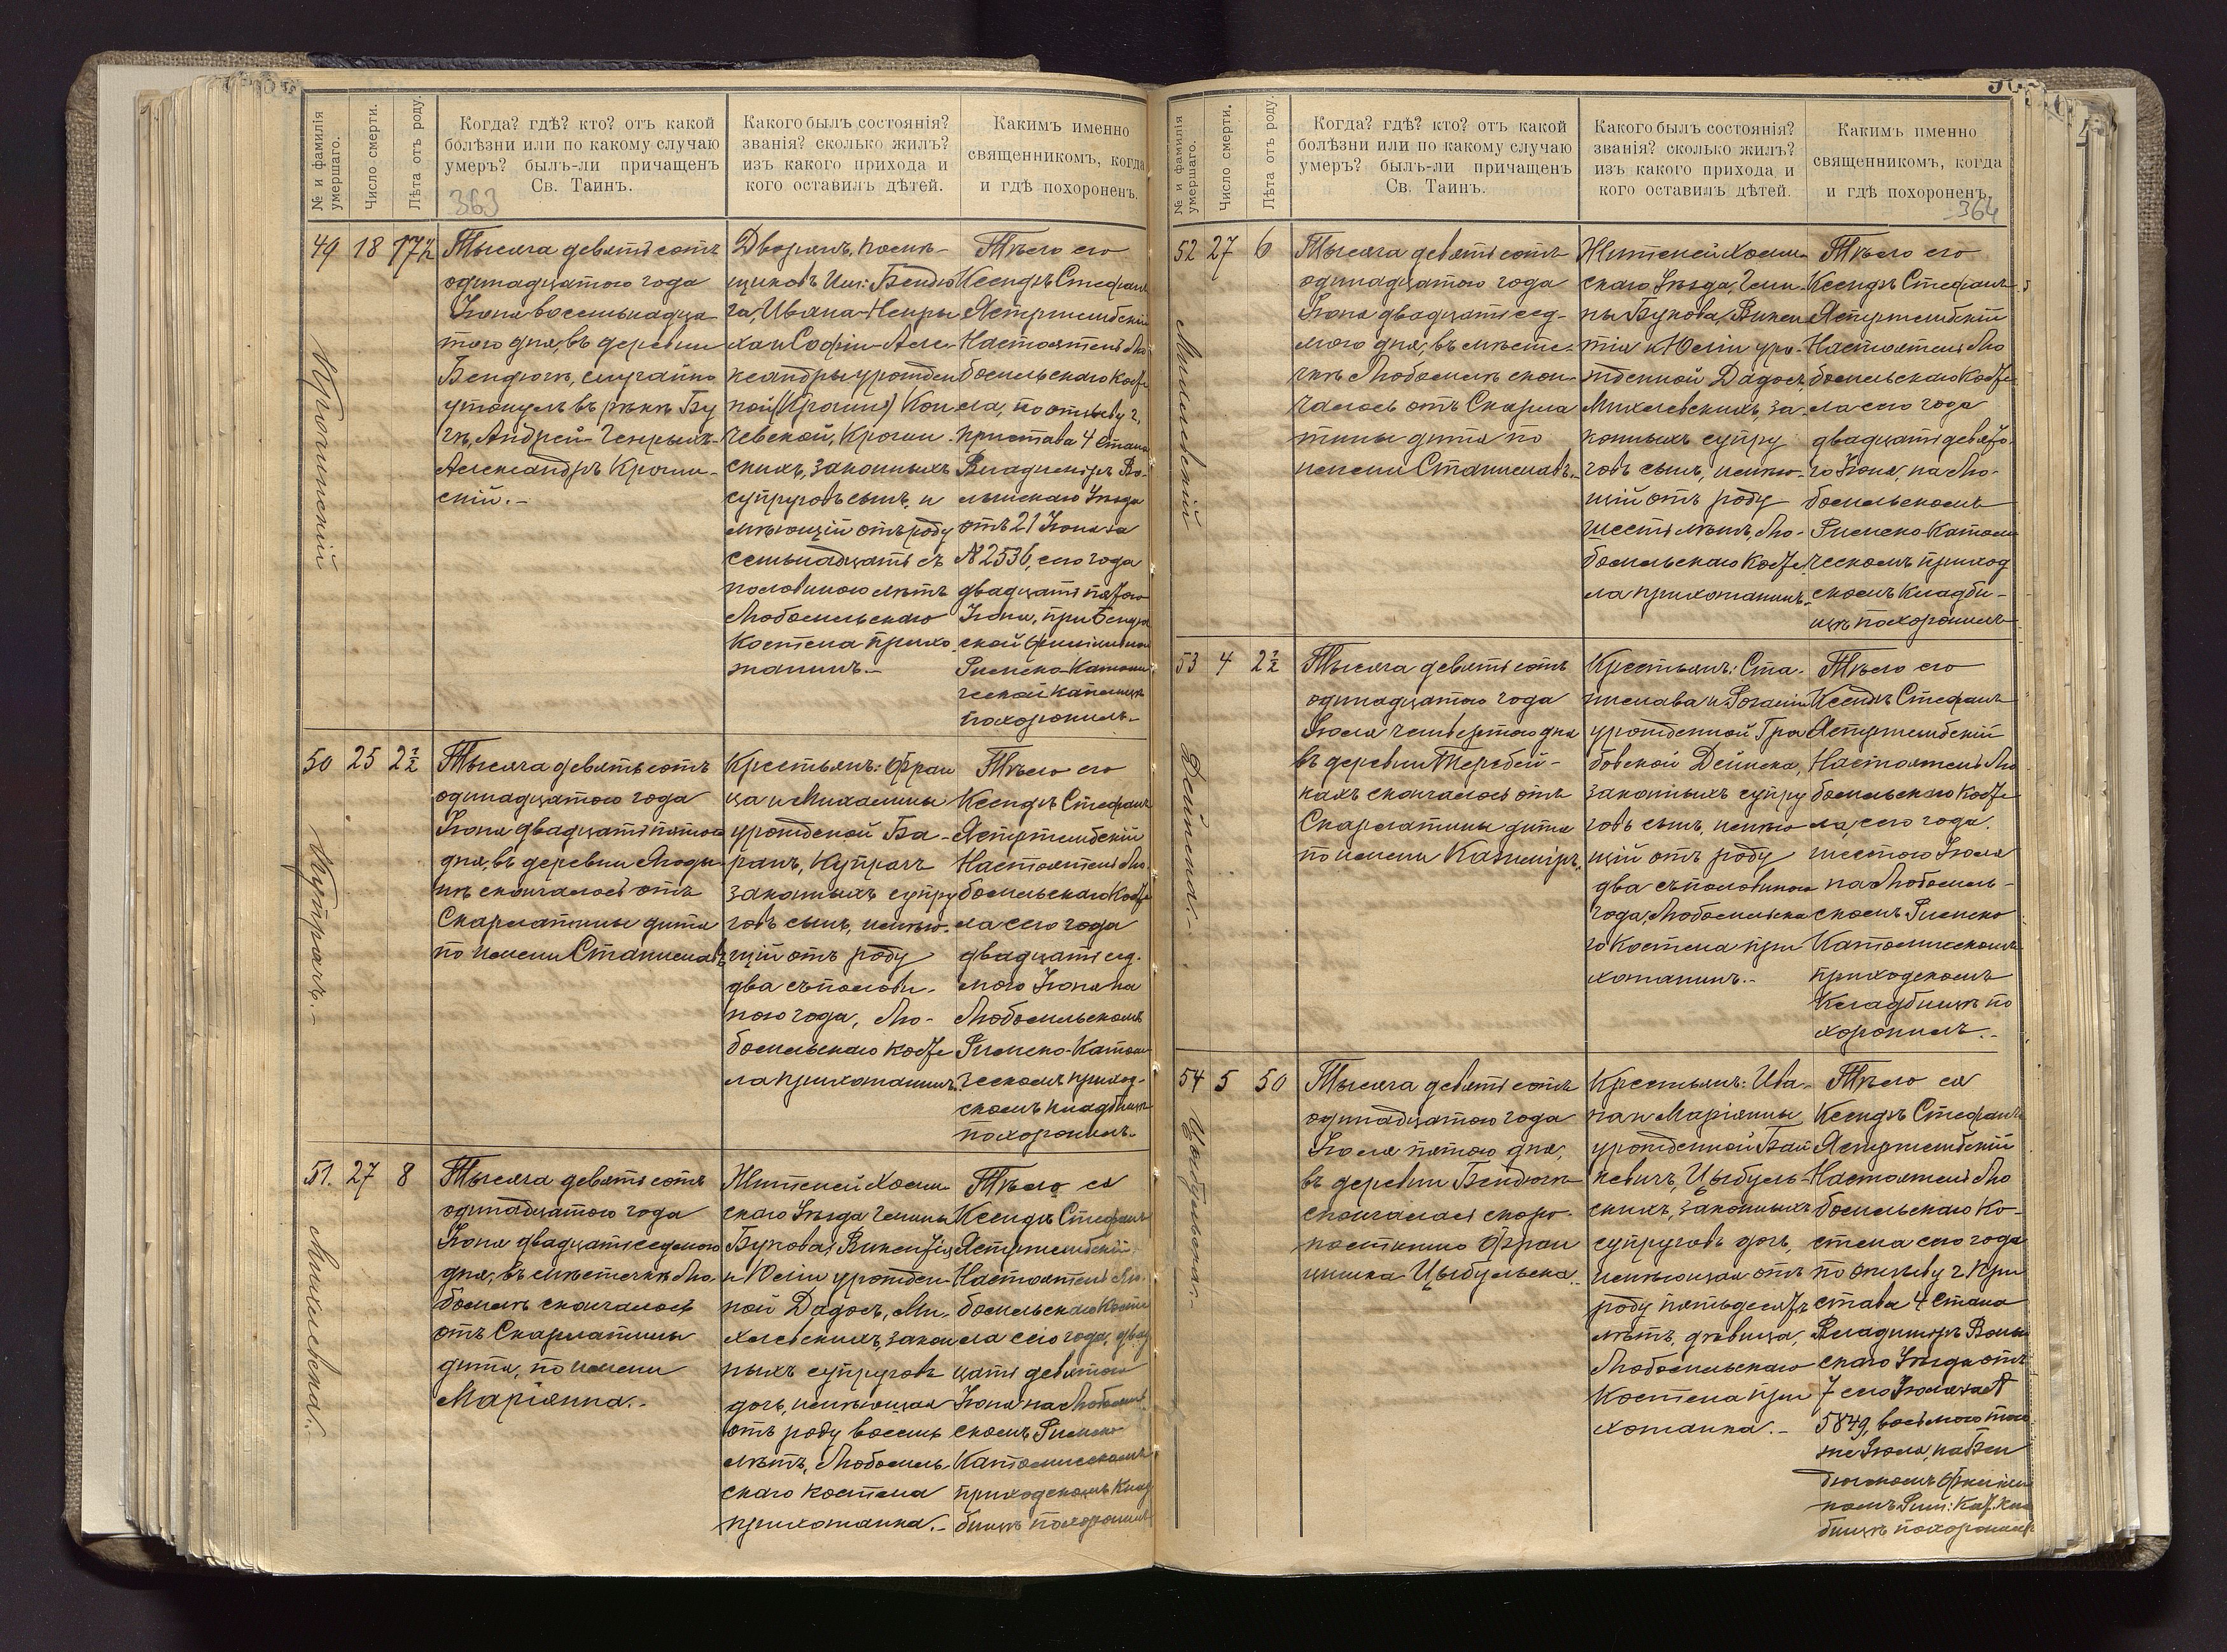 № и фамилія умершаго.
Число смерти.
Лѣта отъ роду.
Когда? гдѣ? кто? отъ какой
болѣзни или по какому случаю
умеръ? былъ-ли причащенъ
Св. Таинъ.
363
Какого былъ состоянія?
званія? сколько жилъ?
изъ какого прихода и
кого оставилъ дѣтей.
Какимъ именно
священникомъ, когда
и гдѣ похороненъ.
49 18 17½
Крочинскій
Тысяча девятьсотъ
одинадцатого года
Іюня восемьнадца-
того дня, въ деревни
Бендюгѣ, случайно
утонулъ въ рѣкѣ Бу
гѣ, Андрей-Генрыхъ-
Александръ Крочин-
скій.-
Дворянъ, помѣ-
щиковъ Им: Бендю
га, Ивана-Генры
ха и Софіи-Алек-
сандры урожден
ной (Крочин)
чевской, Крочин-
скихъ, законныхъ
супруговъ сынъ, и
мѣющій отъ роду
семьнадцать съ
половиною лѣтъ
Любомльскаго
Костела прихо
жанинъ.-
Тѣло его
Ксендзъ Стефанъ
Ястржембскій
Настоятель Лю
бомльскаго Косте
ла, по отзыву г.
Пристава 4 Стана
Владимиръ Во-
лынскаго Уѣзда
отъ 21 Іюня за
№ 2536, сего года
двадцать пятого
Іюня, при Бендю
ской филіальной
Римско-Католи
ческой каплицѣ
похоронилъ.-
50 25 2½
Купрачъ.-
Тысяча девятьсотъ
одинадцатого года
Іюня двадцать пятого
дня, въ деревни
скончалось отъ
Скарлатины дитя
по имени Станиславъ
Крестьянъ: Фран
ца и Михалины
урожденой Ба-
ранъ, Купрачъ
законныхъ супру
говъ сынъ, имѣю-
щій отъ роду
два съ полови-
ною года, Лю-
бомльскаго косте
ла прихожанинъ.
Тѣло его
Ксендзъ Стефанъ
Ястржембскій
Настоятель Лю
бомльскаго Косте
ла сего года
двадцать сед-
мого Іюня на
Любомльскомъ
Римско-Католи
ческомъ приход-
скомъ кладбищѣ
похоронилъ.
51. 27 8
Михалевска.-
Тысяча девятьсотъ
одинадцатого года
Іюня двадцать седмого
дня, въ мѣстечкѣ Лю-
бомлѣ скончалось
отъ Скарлатины
дитя, по имени
Маріянна.-
Жителей Холм-
скаго Уѣзда Гмины
Букова, Викентія
и Юліи урожден-
ной Дадосъ, Ми-
халевскихъ, закон
ныхъ супруговъ
дочь, имѣющая
отъ роду восемь
лѣтъ, Любомль-
скаго костела
прихожанка.-
Тѣло ея
Ксендзъ Стефанъ
Ястржембскій
Настоятель Лю-
бомльскаго Косте
ла сего года, двад
цать девятого
Іюня на Любомль
скомъ Римско
Католическомъ
приходскомъ Клад
бищѣ похоронилъ
№ и фамилія умершаго.
Число смерти.
Лѣта отъ роду.
Когда? гдѣ? кто? отъ какой
болѣзни или по какому случаю
умеръ? былъ-ли причащенъ
Св. Таинъ.
Какого былъ состоянія?
званія? сколько жилъ?
изъ какого прихода и
кого оставилъ дѣтей.
Какимъ именно
священникомъ, когда
и гдѣ похороненъ.
364
52 27 6
Михалевскій
Тысяча девятьсотъ
одинадцатого года
Іюня двадцать сед-
мого дня, въ мѣсте-
чкѣ Любомлѣ скон-
чалось отъ Скарла
тины дитя по
имени Станиславъ.
Жителей Холм-
скаго Уѣзда, Гми-
ны Букова, Викен
тія и Юліи уро-
жденной Дадосъ,
Михалевскихъ, за-
конныхъ супру
говъ сынъ, имѣю-
щій отъ роду
шесть лѣтъ, Лю-
бомльскаго Косте
ла прихожанинъ.
Тѣло его
Ксендзъ Стефанъ
Ястржембскій
Настоятель Лю
бомльскаго Косте
ла сего года
двадцать девято-
го Іюня, на Лю-
бомльскомъ
Римско-Католи
ческомъ приход
скомъ Кладби-
щѣ похоронилъ
53 4 2½
Дейнека.-
Тысяча девятьсотъ
одинадцатого года
Іюля четвертого дня
въ деревни Теребей-
кахъ скончалось отъ
Скарлатины дитя
по имени Казимiръ.
Крестьянъ: Ста-
нислава и Розаліи
урожденной Гра
бовской Дейнека,
законныхъ супру
говъ сынъ, имѣю
щій отъ роду
два съ половиною
года, Любомльска
го Костела при
хожанинъ.-
Тѣло его
Ксендзъ Стефанъ
Ястржембскій
Настоятель Лю
бомльскаго Косте
ла, сего года.
шестого Іюля
на Любомль-
скомъ Римско
Католическомъ
приходскомъ
Кладбищѣ по
хоронилъ.-
54 5 50
Цыбульска.-
Тысяча девятьсотъ
одинадцатого года
Іюля пятого дня,
въ деревни Бендюгѣ
скончалась скоро-
постижно Фран
цишка Цыбульска.
Крестьянъ: Ива-
на и Маріянны
урожденной Бай
кевичъ, Цыбуль-
скихъ, законныхъ
супруговъ дочь,
имѣющая отъ
роду пятьдесятъ
лѣтъ, дѣвица,
Любомльскаго
Костела при
хожанка.-
Тѣло ея
Ксендзъ Стефанъ
Ястржембскій
Настоятель Лю
бомльскаго Ко-
стела сего года
по отзыву г. При
става 4 Стана
Владимиръ Волын
скаго Уѣзда отъ
7 сего Іюля за №
5849, восьмого того
же Іюля, на Бен
дюгскомъ филіаль
номъ Рим: Кат. Клад
бищѣ похоронилъ